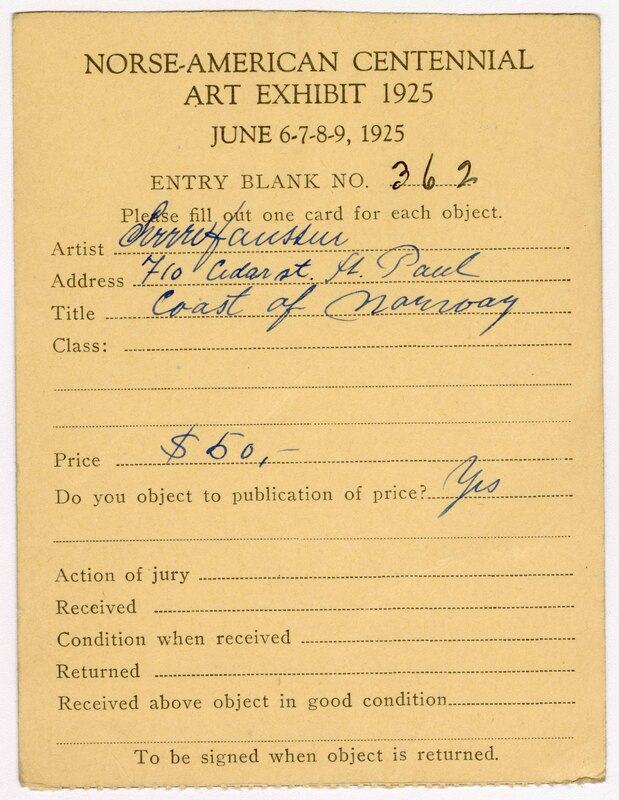 NORSE-AMERICAN CENTENNIAL
ART EXHIBIT 1925
JUNE 6-7-8-9, 1925
ENTRY BLANK NO. 362
Please fill out one card for each object.
Artist Sverre Hanssen
Address 710 Cedar st. St. Paul
Title Coast of Norway
Class:
Price $50,-
Do you object to publication of price? Yes
Action of jury
Received
Condition when received
Returned
Received above object in good condition
To be signed when object is returned.